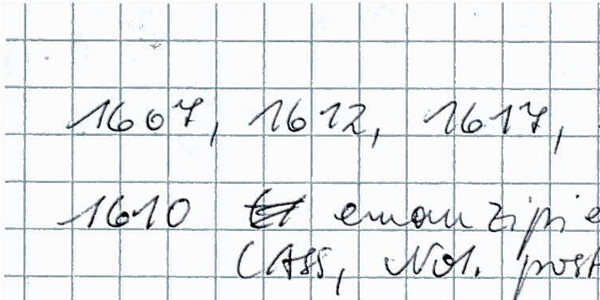 1607, 1612, 1617,
1610 emanzipie
(Ass, Not. post